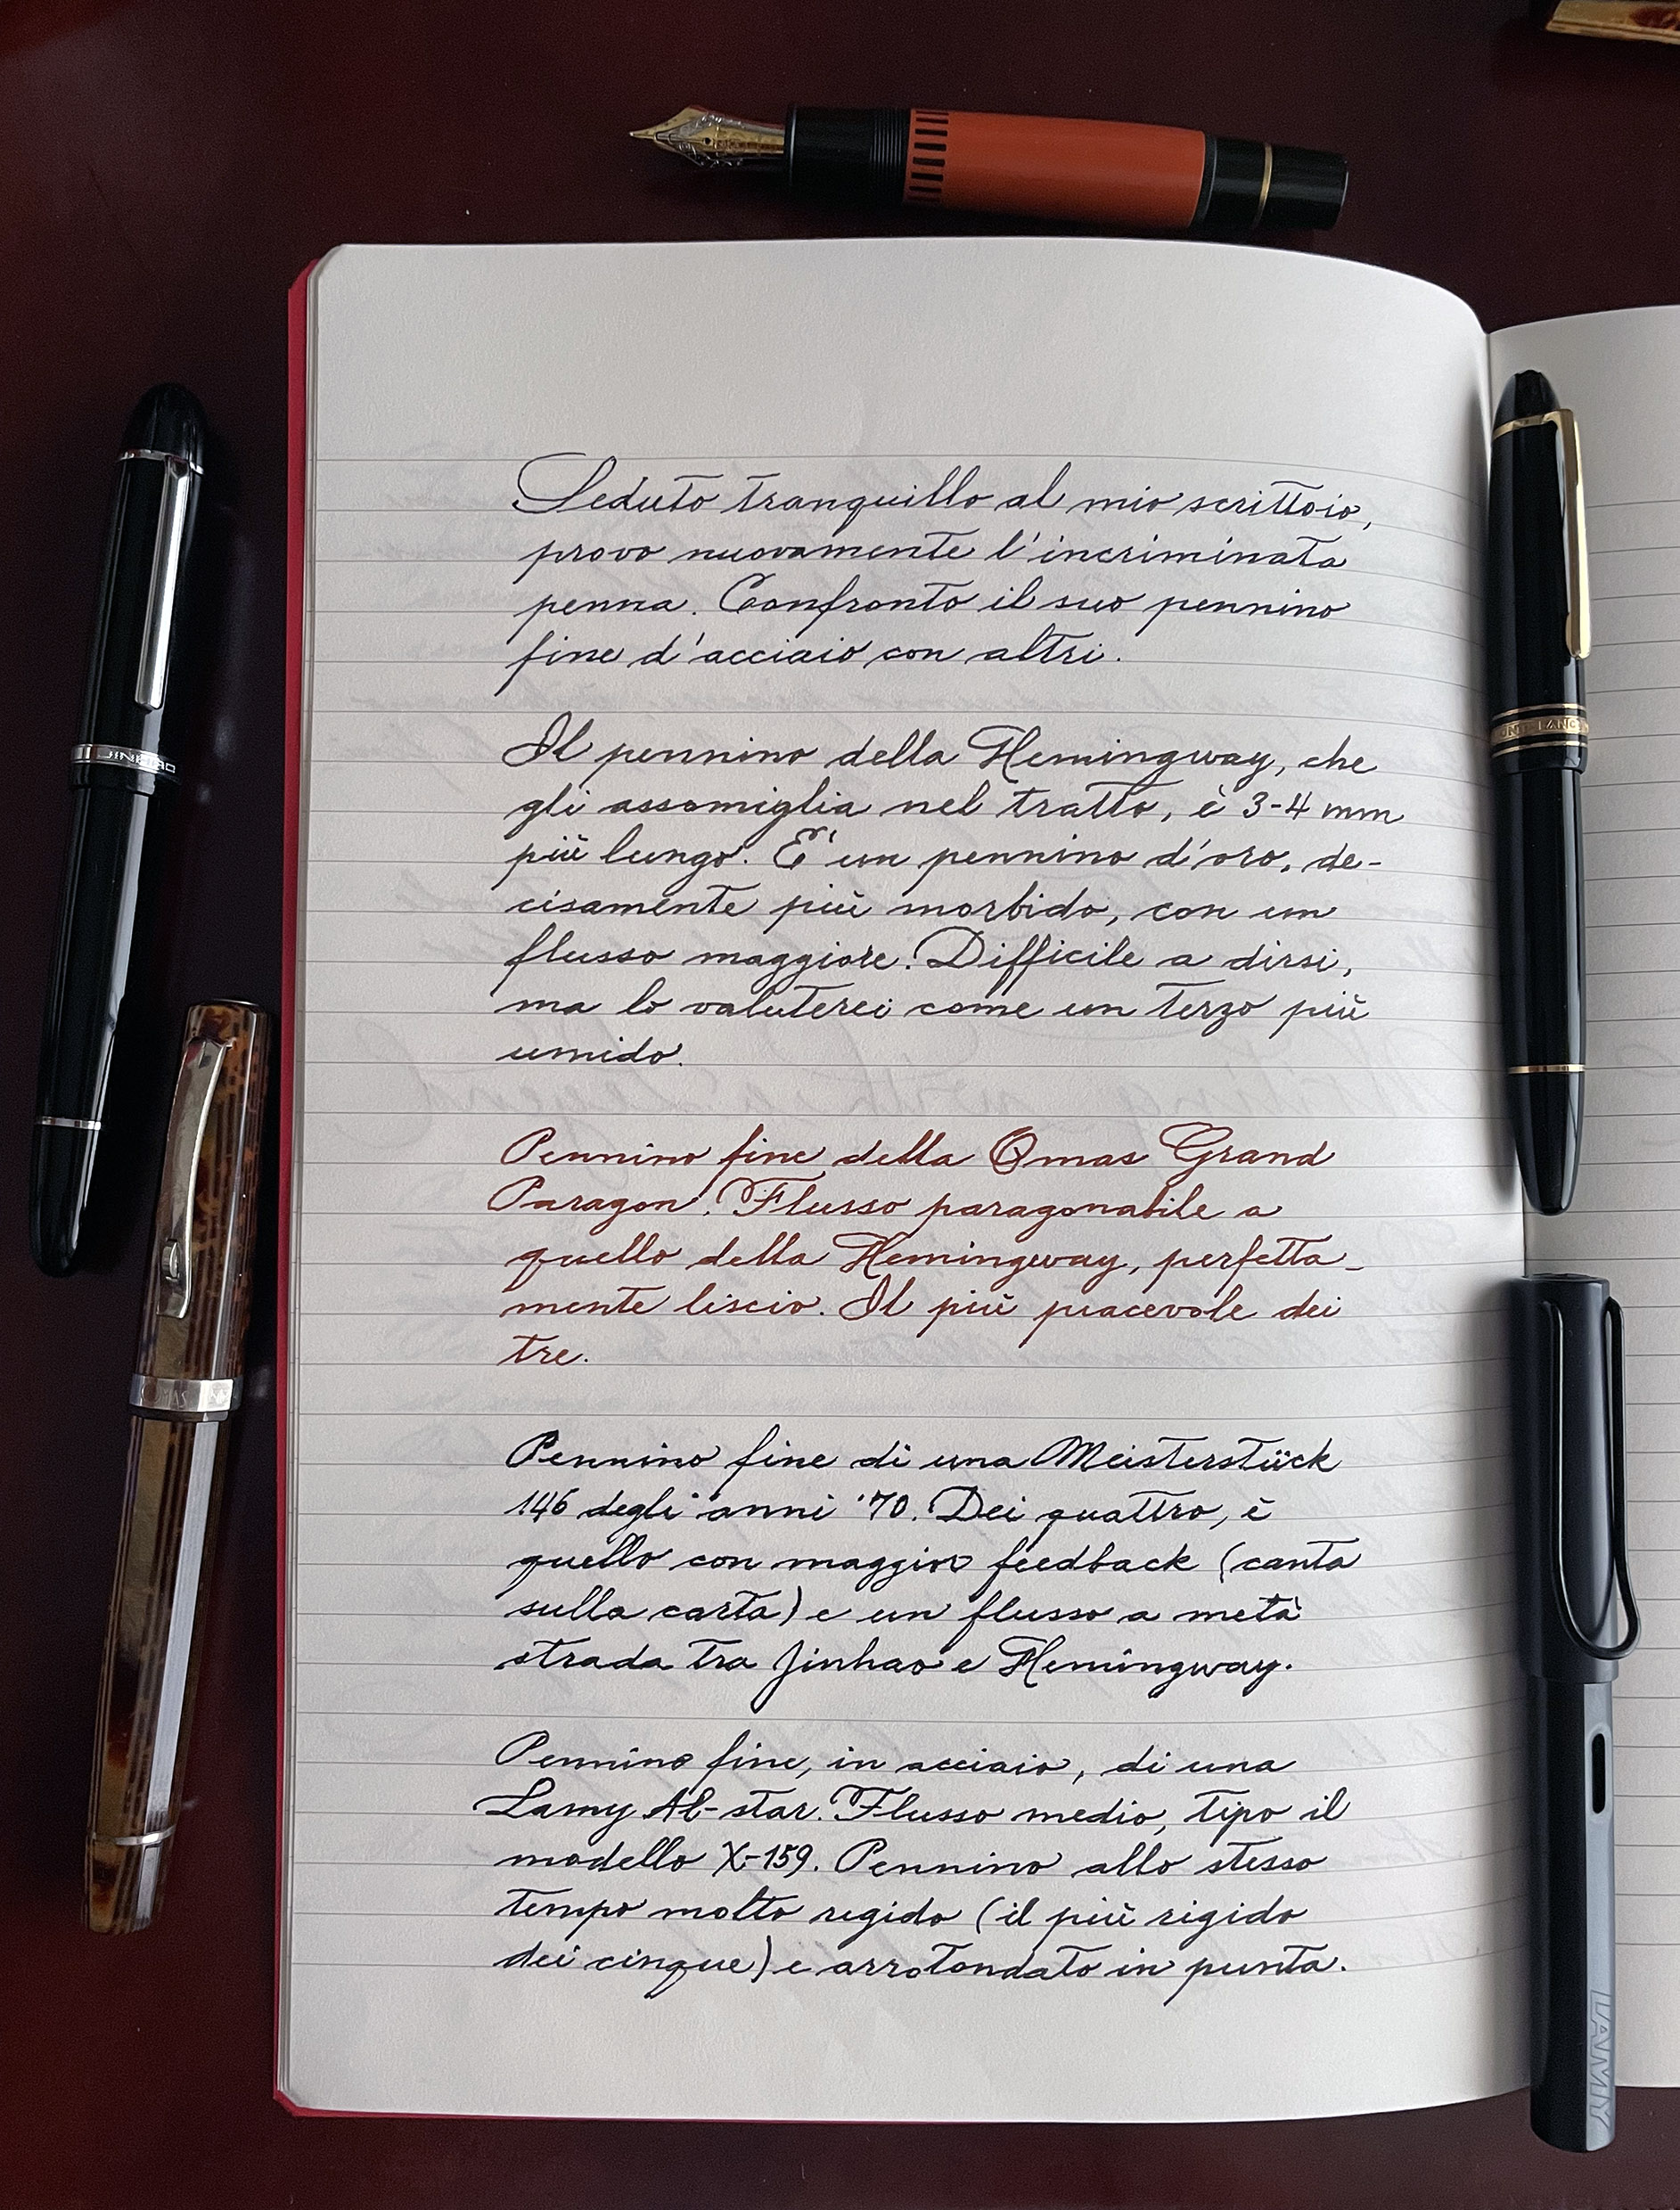 Seduto tranquillo al mio scrittoio,
provo nuovamente l'incriminata
penna. Confronto il suo pennino
fine d'acciaio con altri.
Il pennino della Hemingway, che
gli assomiglia nel tratto, è 3-4 mm
più lungo. E' un pennino d'oro, de-
cisamente più morbido, con un
flusso maggiore. Difficile a dirsi,
ma lo valuterei come un terzo più
umido.
Pennino fine della Omas Grand
Paragon. Flusso paragonabile a
quello della Hemingway, perfetta-
mente liscio. Il più piacevole dei
tre.
Pennino fine di una Meisterstück
146 degli anni '70. Dei quattro, è
quello con maggior feedback (canta
sulla carta) e un flusso a metà
strada tra Jinhao e Hemingway.
Pennino fine, in acciaio, di una
Lamy Al-star. Flusso medio, tipo il
modello X-159. Pennino allo stesso
tempo molto rigido (il più rigido
dei cinque) e arrotondato in punta.
JINHAO
OMAS
LAMY